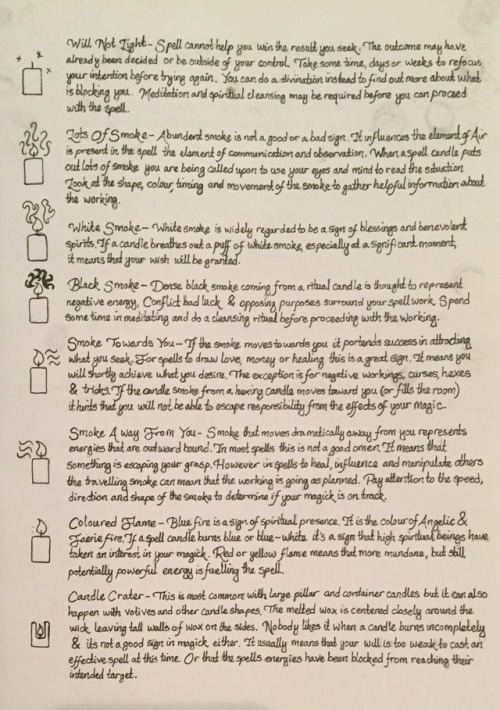 Will Not Light - Spell cannot help you win the result you seek. The outcome may have
already been decided or be outside of your control. Take some time, days or weeks to refocus
your intention before trying again. You can do a divination instead to find out more about what
is blocking you. Meditation and spiritual cleansing may be required before you can proceed
with the spell.
Lots Of Smoke - Abundent smoke is not a good or a bad sign. It influences the element of Air
is present in the spell the element of communication and observation. When a spell candle puts
out lots of smoke you are being called upon to use your eyes and mind to read the situation
Look at the shape, colour, timing and movement of the smoke to gather helpful information about
the working.
White Smoke - White smoke is widely regarded to be a sign of blessings and benevolent
spirits. If a candle breathes out a puff of white smoke, especially at a significant moment,
it means that your wish will be granted.
Black Smoke - Dense black smoke coming from a ritual candle is thought to represent
negative energy, Conflict bad luck & opposing purposes surround your spell work. Spend
some time in meditating and do a cleansing ritual before proceeding with the working.
Smoke Towards You - If the smoke moves towards you it portends success in attracting
what you seek. For spells to draw love, money or healing this is a great sign. It means you
will shortly achieve what you desire. The exception is for negative workings, curses, hexes
& tricks. If the candle smoke from a hexing candle moves toward you (or fills the room)
it hints that you will not be able to escape responsibility from the effects of your magic.
Smoke Away From You - Smoke that moves dramatically away from you represents
energies that are outward bound. In most spells this is not a good omen. It means that
something is escaping your grasp. However in spells to heal, influence and manipulate others
the travelling smoke can mean that the working is going as planned. Pay attention to the speed,
direction and shape of the smoke to determine if your magick is on track.
Coloured Flame - Blue fire is a sign of spiritual presence. It is the colour of Angelic &
Faerie fire. If a spell candle burns blue or blue-white it's a sign that high spiritual beings have
taken an interest in your magick. Red or yellow flame means that more mundane, but still
potentially powerful energy is fuelling the spell.
Candle Crater - This is most common with large pillar and container candles but it can also
happen with Votives and other candle shapes. The melted wax is centered closely around the
wick leaving tall walls of wax on the sides. Nobody likes it when a candle burns incompletely
& its not a good sign in magick either. It usually means that your will is too weak to cast an
effective spell at this time. Or that the spells energies have been blocked from reaching their
intended target.